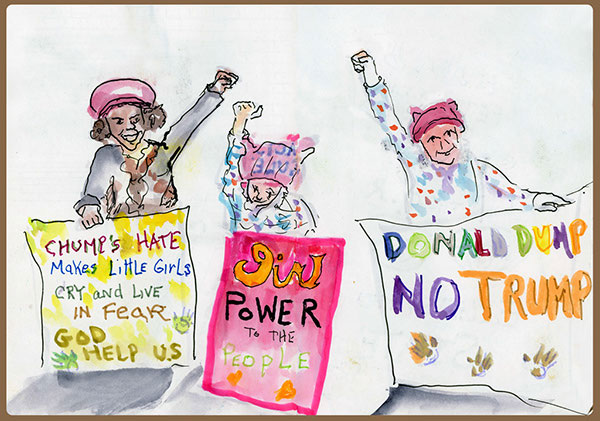 CHUMP'S HATE
MAKES LITTLE GIRLS
CRY AND LIVE
IN FEAR
GOD
HELP US
Girl
POWER
TO THE
PEOPLE
DONALD DUMP
NO TRUMP